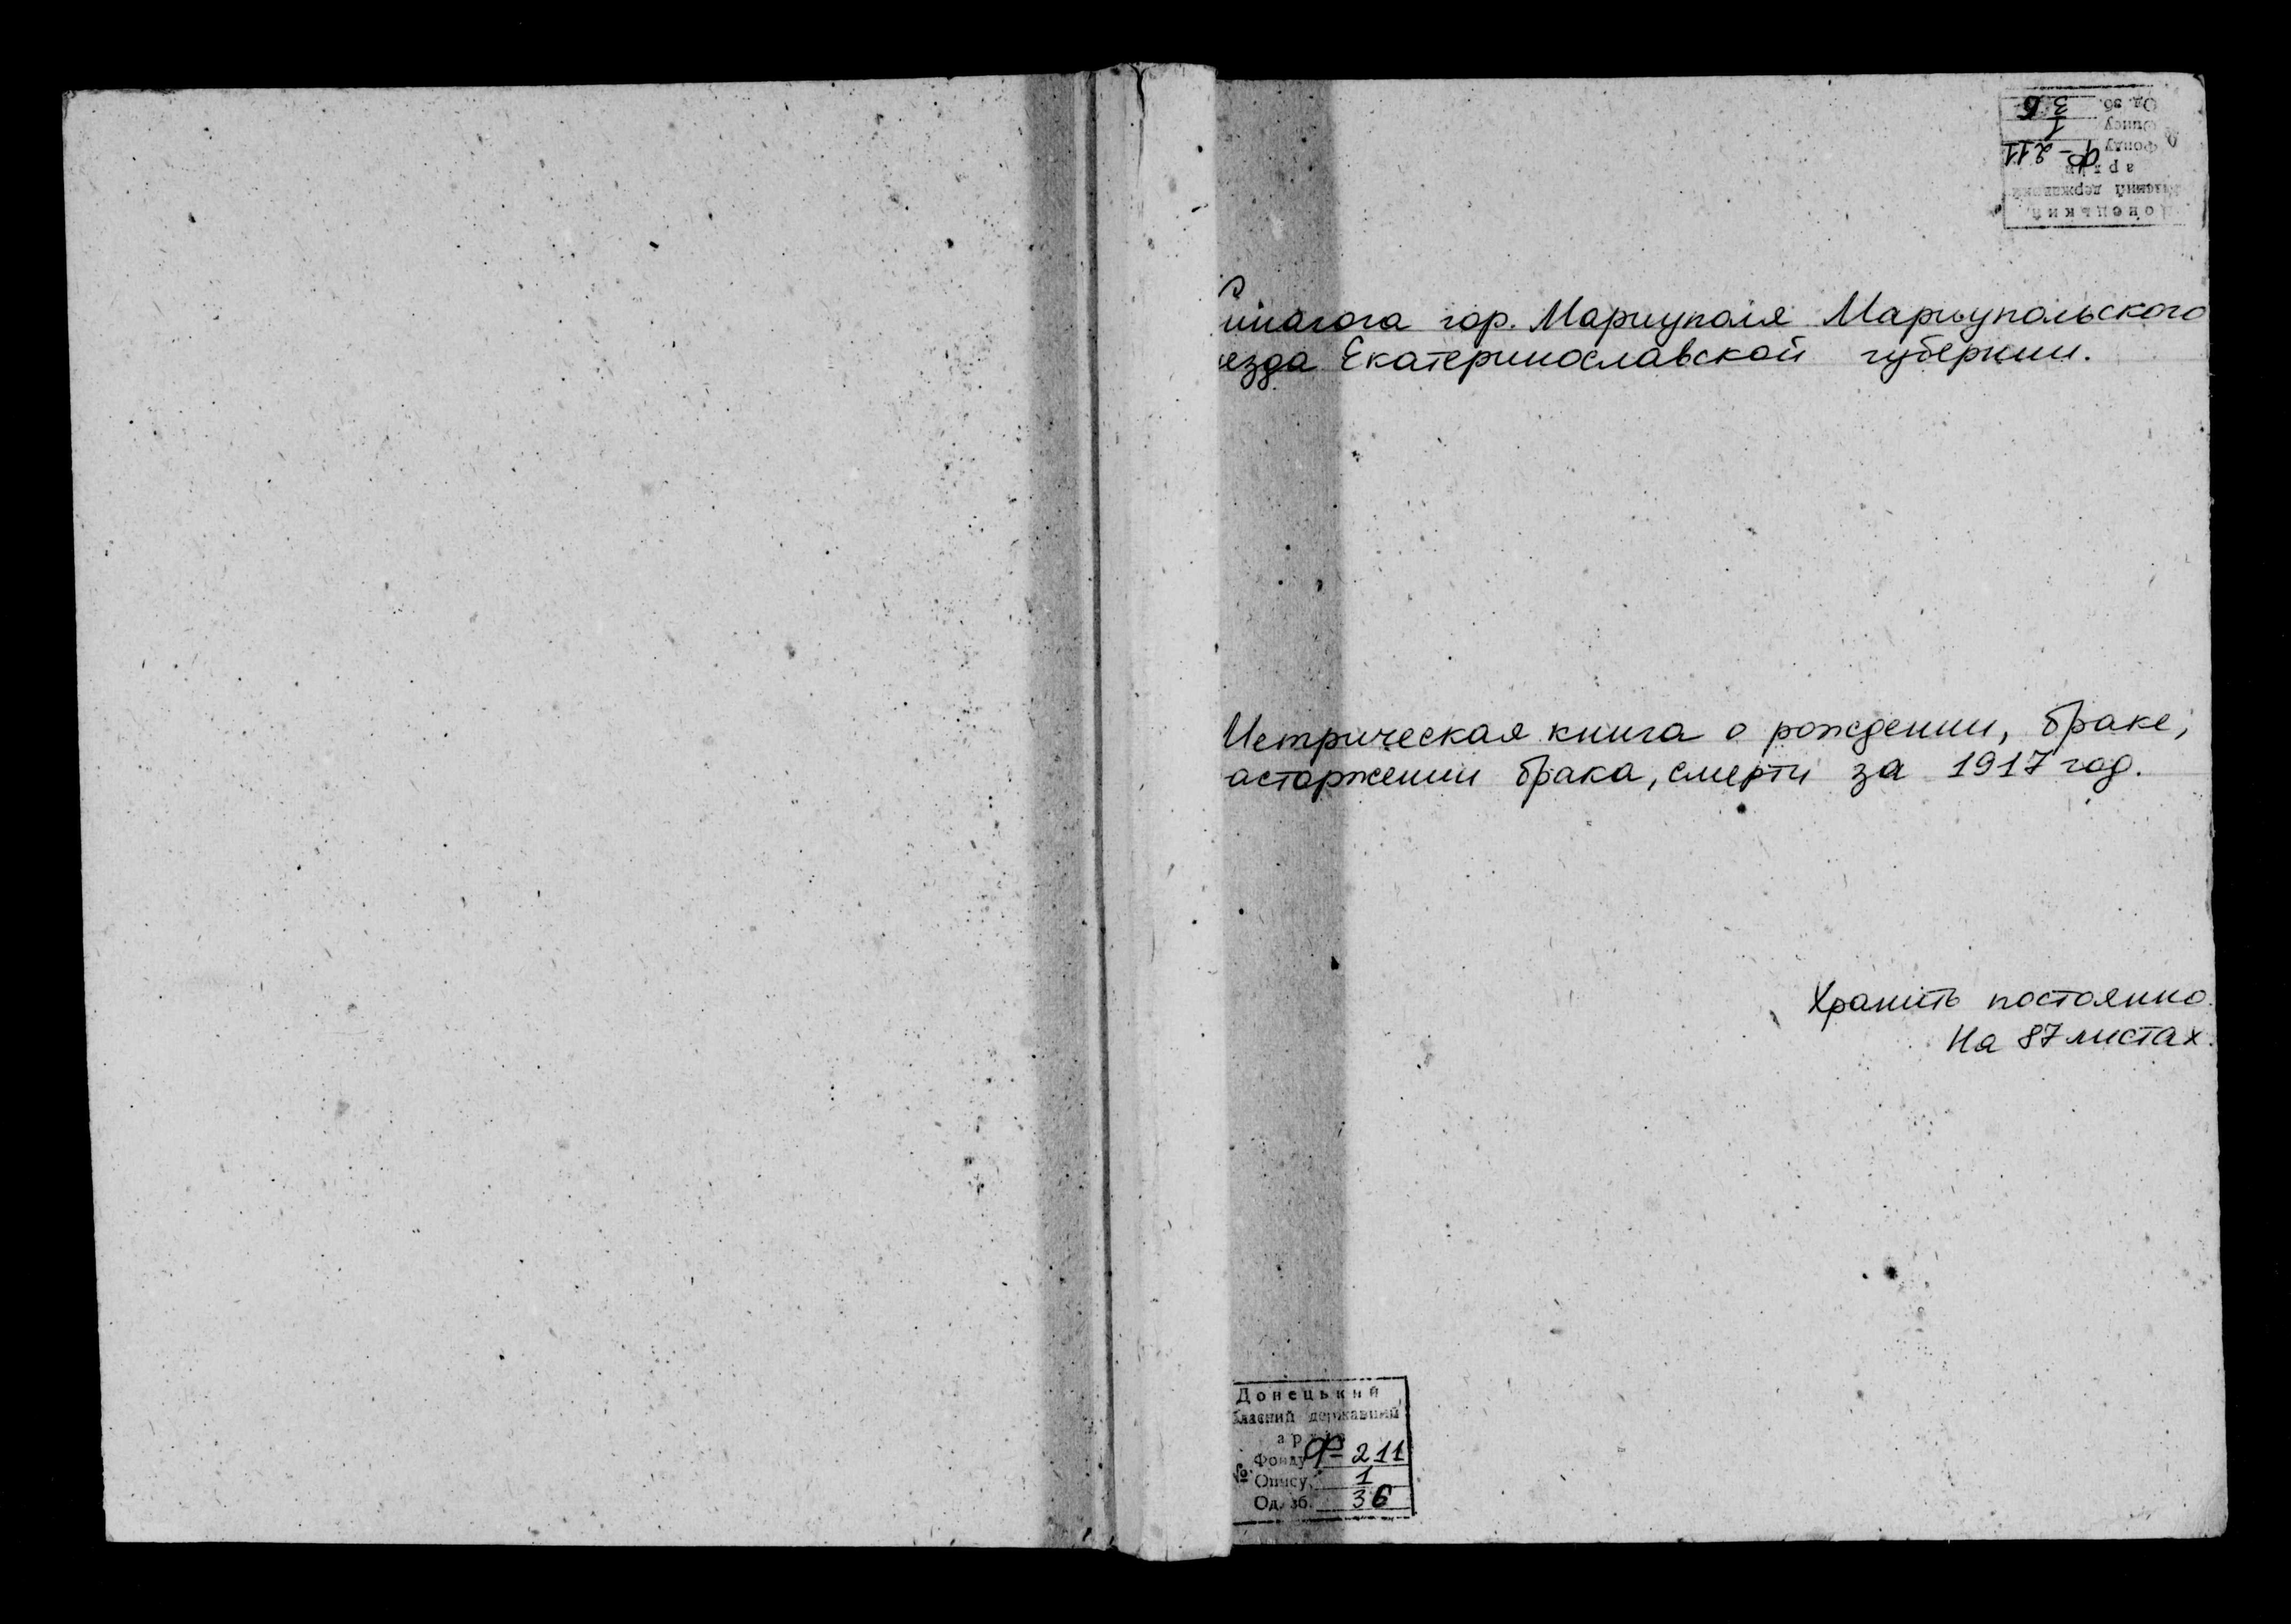 Синагога гор. Мариуполя Мариупольского
уезда Екатеринославской губернии.
Метрическая книга о рождении, браке,
асторжении брака, смерти за 1917 год.
Хранить постоянно.
На 87 листах.
Донецький
бласний державний
архів
№ Фонду Ф-211
Опису 1
Од. зб. 36
Донецький
бласний державний
архів
№ Фонду Ф-211
Опису 1
Од. зб. 36